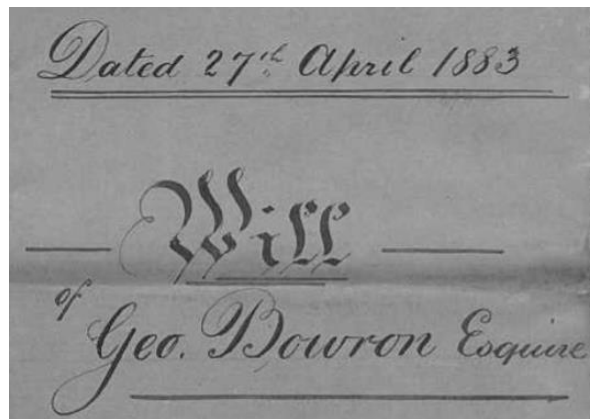 Dated 27th. April 1883
Will
of
Geo. Bowron Esquire